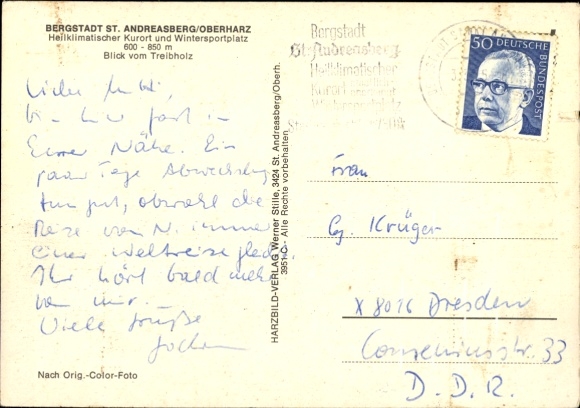 BERGSTADT ST. ANDREASBERG/OBERHARZ
Heilklimatischer Kurort und Wintersportplatz
600 - 850 m
Blick vom Treibholz
bin hier fast in
Eurer Nähe. Ein
paar Tage Abwechslung
tun gut, obwohl die
Reise von N. immer
einer Weltreise gleicht.
Ihr hört bald mehr
von mir. –
Viele Grüße
Jochen
Nach Orig.-Color-Foto
HARZBILD-VERLAG Werner Stille, 3424 St. Andreasberg/Oberh.
3951 C - Alle Rechte vorbehalten
Bergstadt
St. Andreasberg
Heilklimatischer
Kurort
Wintersportplatz
50 DEUTSCHE
BUNDESPOST
Frau
Krüger
X 8016 Dresden
Comeniusstr. 33
D. D. R.